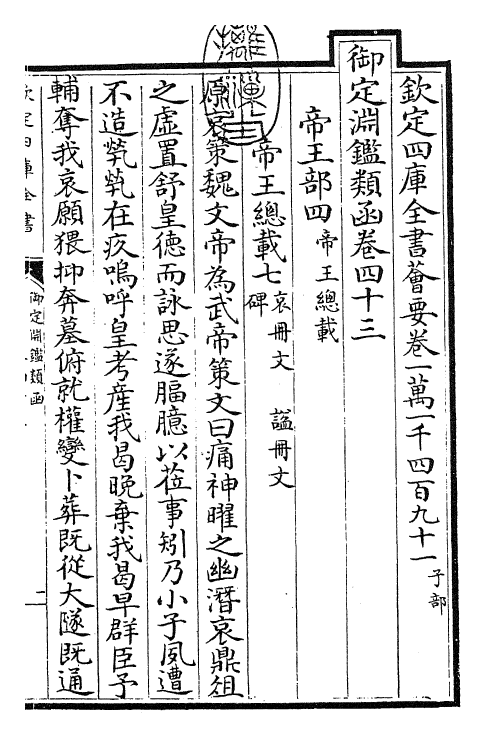 欽定四庫全書薈要卷一萬一千四百九十一 子部
御定淵鑑類函卷四十三
帝王部四 帝王總載
帝王總載七 哀冊文 諡冊文 碑
原哀策魏文帝為武帝策文曰痛神曜之幽潛哀鼎俎
之虛置舒皇德而詠思遂腷臆以蒞事矧乃小子夙遭
不造煢煢在疚嗚呼皇考産我曷晚棄我曷早群臣予
輔奪我哀願猥抑奔墓俯就權變卜葬既從大隧既通
欽定四庫全書
御定淵鑑類函